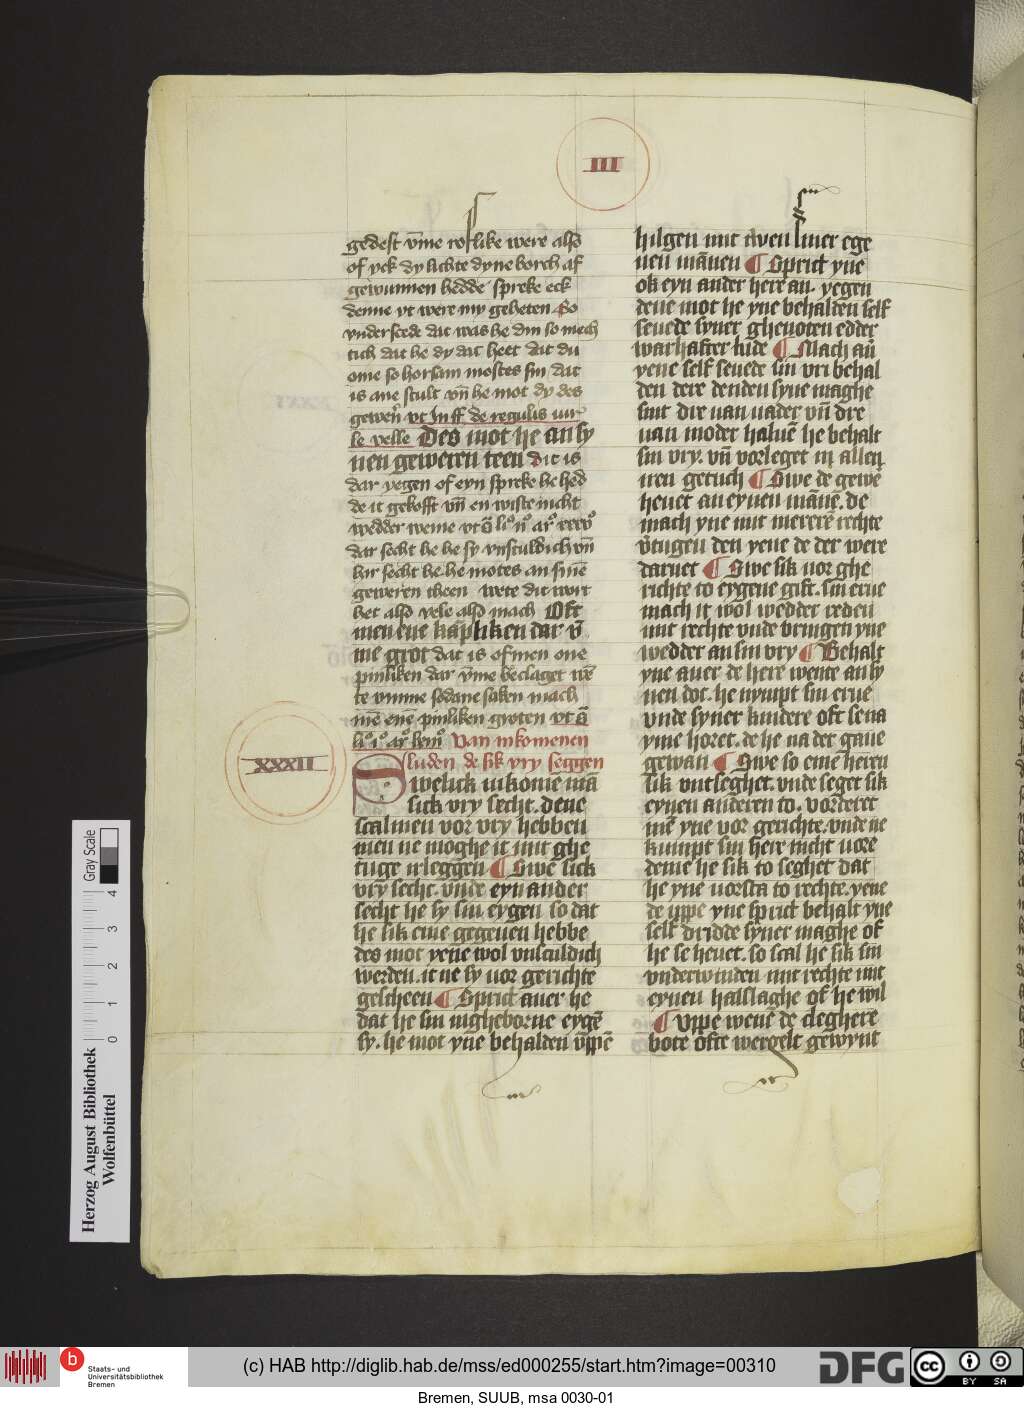 III
gedest v̄me wrslike were also
of yck dy lichte dyne borch af
gewunnen hedde spreke eck
denne yt were my gebeten So
vnderscede dat was he din so mech
tich dat he dy dat heet dat du
ome so horsam mostes sin dat
is ane scult vn̄ he mot dy des
geweren vt In ff de regulis iur
le velle Des mot he an sy
nen geweren teen dit is
dar yegen of eyn spreke he hed
de it gekofft vn̄ en wiste nicht
wedder weme
dar secht he he sy vnsculdich vn̄
hir secht he he motes an sinē
geweren theen wete dit wort
het also vele also mach Oft
men ene kāpliken dar v̄
me grot dat is of men one
pinliken dar v̄me beclaget wē
te vmme sodane saken mach
mē enē pinliken groten vt ā
Van inkomenen
luden de sik vry seggen
XXXII
Swelick inkome mā
sick vry secht. dene
scal men vor vry hebben
men ne moghe it mit ghe
tuge irleggen ¶ Swe sick
vry secht. vnde eyn ander
secht he sy sin eygen so dat
he sik eme gegeuen hebbe
des mot yene wol vnsculdich
werden. it ne sy uor gerichte
gescheen ¶ Sprict auer he
dat he sin ingheborne eygē
sy. he mot yne behalden vppē
hilgen mit twen siner ege
nen mānen ¶ Sprict yne
ok eyn ander here an. yegen
dene mot he yne behalden self
seuede syner ghenoten edder
warhafter lude ¶ Mach au
yene self seuede sin vri behal
den dere denden syne maghe
sint dre uan uader vn̄ dre
uan moder haluē he behalt
sin vry. vn̄ vorleget in allen
iren getuch ¶ Swe de gewē
heuet an eynen māne. de
mach yne mit mererē rechte
v̄tugen den yene de der were
daruet ¶ Swe sik uor ghe
richte to eygene gift. sin erue
mach it wol wedder reden
mit rechte vnde bringen yne
wedder an sin vry ¶ Behalt
yne auer de here wente an sy
nen dot. he nympt sin erue
vnde syner kindere oft se na
yme horet. de he na der gaue
gewan ¶ Swe so eme heren
sik vntseghet. vnde seget sik
eynen anderen to. vorderet
mē yne vor gerichte. vnde ne
kumpt sin here nicht uore
deme he sik to seghet dat
he yne uorsta to rechte. yene
de uppe yne sprict behalt yne
self dridde syner maghe of
he se heuet. so scal he sik sin
vnderwinden mit rechte mit
eynen halslaghe of he wil
¶ Vppe wene de cleghere
bote ofte wergelt gewynt
Gray Scale
0 1 2 3 4
Herzog August Bibliothek
Wolfenbüttel
b
Staats- und
Universitätsbibliothek
Bremen
(c) HAB http://diglib.hab.de/mss/ed000255/start.htm?image=00310
DFG
cc
BY SA
Bremen, SUUB, msa 0030-01